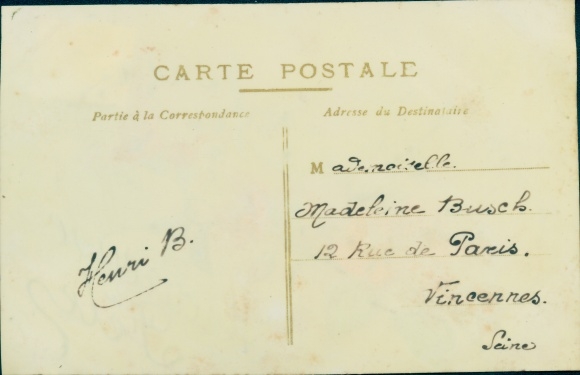 CARTE POSTALE
Partie à la Correspondance
Adresse du Destinataire
Mademoiselle.
Madeleine Busch.
12 Rue de Paris.
Vincennes.
Seine
Henri B.